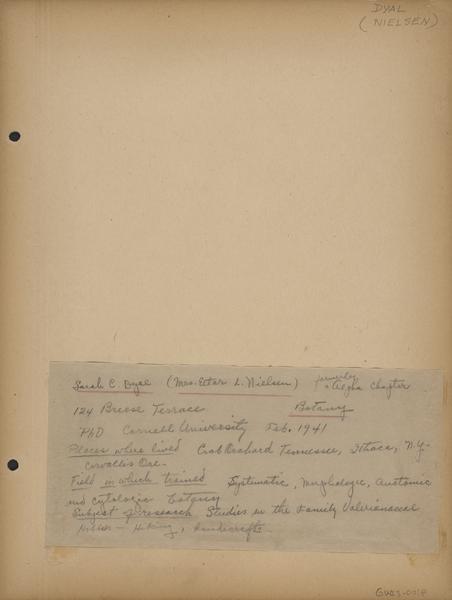 DYAL
(NIELSEN)
Sarah C. Dyal (Mrs. Etlar L. Nielsen) formerly Alpha Chapter
124 Breese Terrace Botany
PhD Cornell University Feb. 1941
Places where lived Crab Orchard Tennessee, Ithaca, N.Y.
Corvallis Ore.
Field in which trained Systematic, Morphologic, Anatomic
and Cytologic botany
Subject of research Studies in the Family Valerianaceae
Hobbies - Hiking, Handicrafts